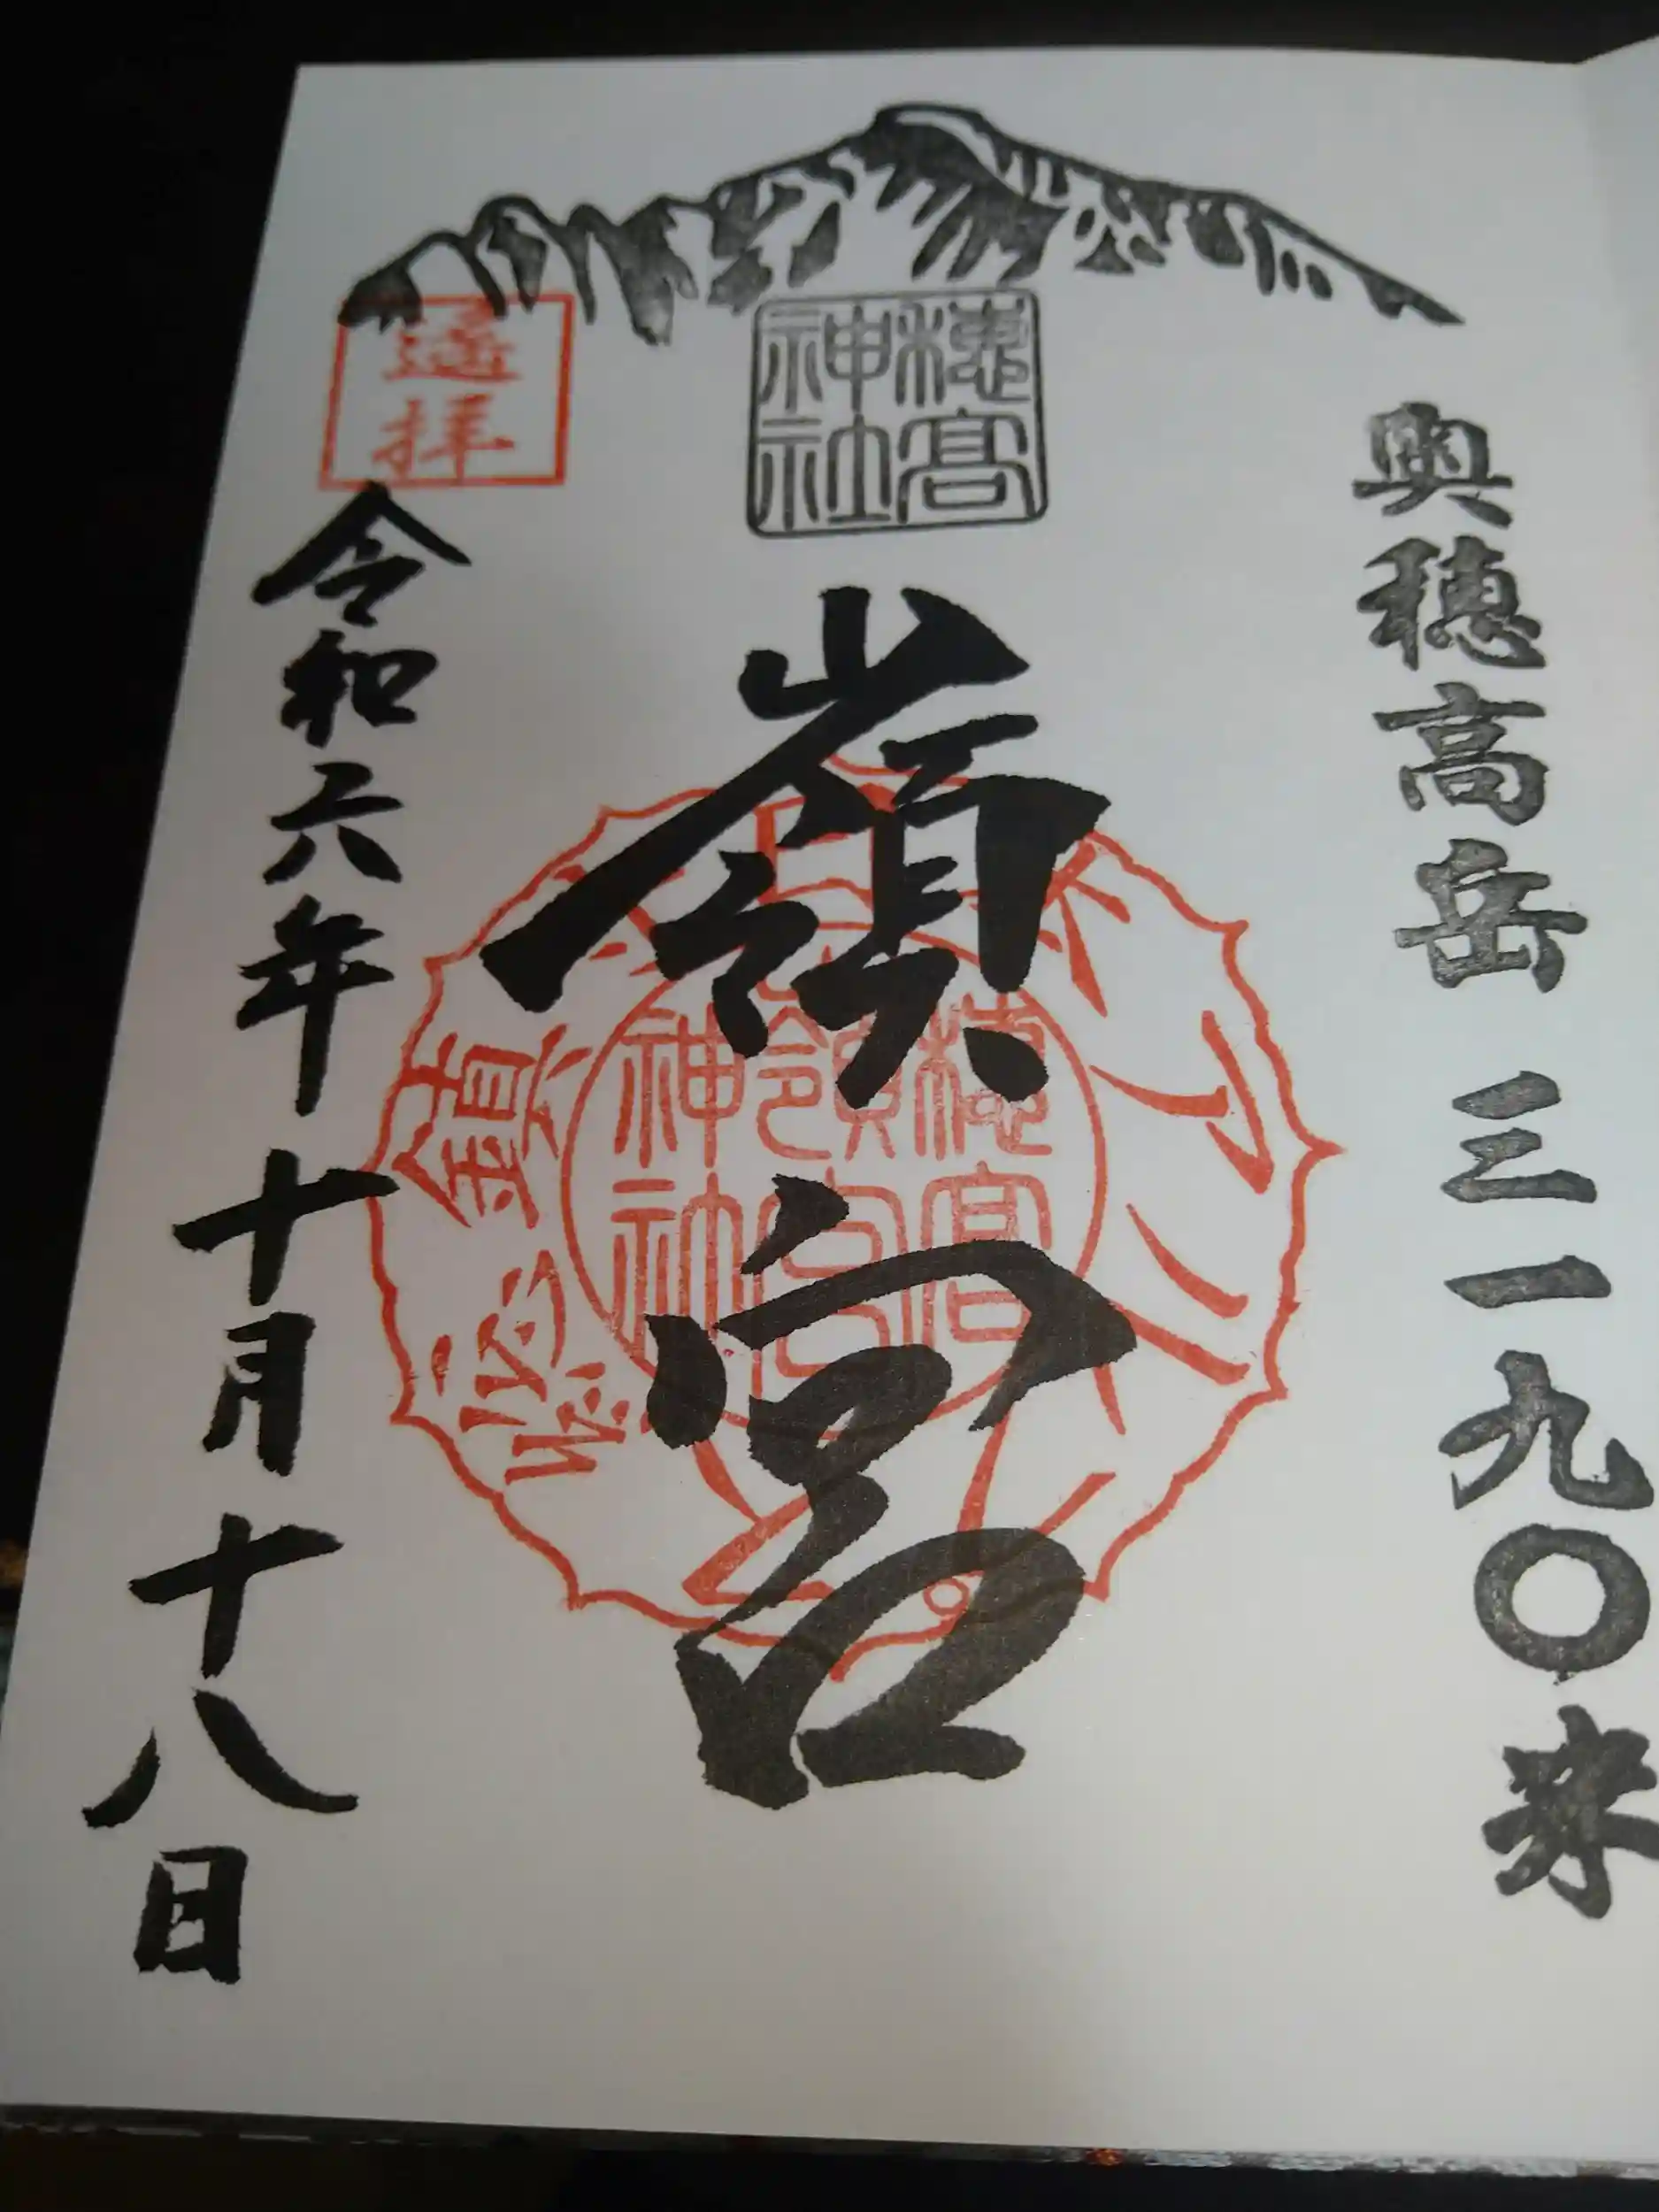 奥穂高岳 三一九〇米
穂高
神社
嶺宮
穂高
嶺宮
神社
遥拝
令和六年十月十八日